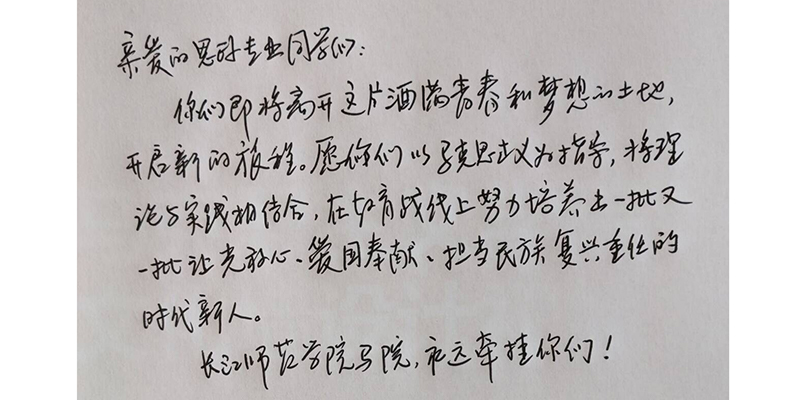 亲爱的思政专业同学们：
你们即将离开这片洒满青春和梦想的土地，
开启新的旅程。愿你们以马克思主义为指导，将理
论与实践相结合，在教育战线上努力培养出一批又
一批让党放心、爱国奉献、担当民族复兴重任的
时代新人。
长江师范学院马院，永远牵挂你们！